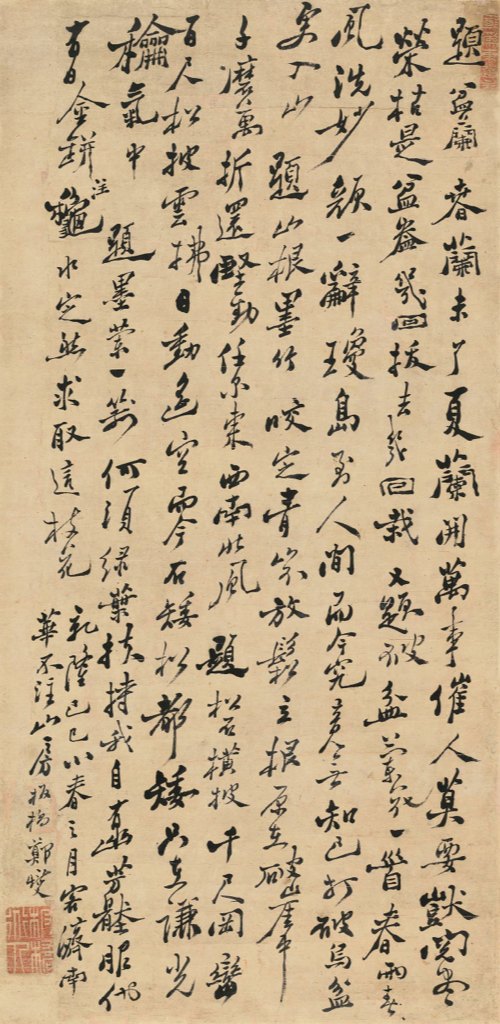 題盆蘭 春蘭未了夏蘭開萬事催人莫要獃閱盡
榮枯是盆盎幾回拔去幾回栽 又題破盆蘭花 一唇春雨春
風洗妙顏一辭瓊島到人間而今究竟無知己打破烏盆
更入山 題山根墨竹 咬定青山不放鬆立根原在破崖中
千磨萬折還堅勁任尔東西南北風 題松石橫披 千尺岡巒
百尺松披雲拂日動遙空而今石矮松都矮只在謙光
龢氣中 題墨蘭一箭 何須綠葉扶持我自有幽芳艷服他
有日金鉼注水定然求取這枝花
乾隆己巳小春之月客濟南
華不注山房板橋鄭燮